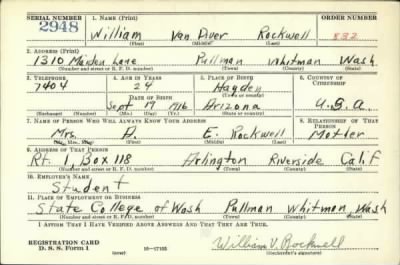 SERIAL NUMBER 1. NAME (Print) ORDER NUMBER
2948 William Van Dver Rockwell 832
(First) (Middle) (Last)
2. ADDRESS (Print)
1310 Maiden Lane Pullman Whitman Wash
(Number and street or R. F. D. number) (Town) (County) (State)
3. TELEPHONE 4. AGE IN YEARS 5. PLACE OF BIRTH 6. COUNTRY OF CITIZENSHIP
7404 24 Hayden
(Town or county)
DATE OF BIRTH
Sept 17 1916 Arizona U.S.A.
(Exchange) (Number) (Mo.) (Day) (Yr.) (State or country)
7. NAME OF PERSON WHO WILL ALWAYS KNOW YOUR ADDRESS 8. RELATIONSHIP OF THAT PERSON
Mrs. A. E. Rockwell Mother
(First) (Middle) (Last)
9. ADDRESS OF THAT PERSON
Rt. 1, Box 118 Arlington Riverside Calif
(Number and street or R. F. D. number) (Town) (County) (State)
10. EMPLOYER'S NAME
Student
11. PLACE OF EMPLOYMENT OR BUSINESS
State College of Wash Pullman Whitman Wash
(Number and street or R. F. D. number) (Town) (County) (State)
I AFFIRM THAT I HAVE VERIFIED ABOVE ANSWERS AND THAT THEY ARE TRUE.
REGISTRATION CARD
D. S. S. Form 1 (over) 16—17105 William V. Rockwell
(Registrant's signature)